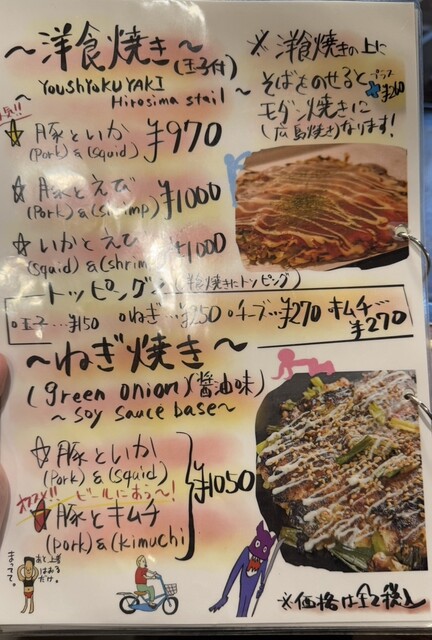 ～洋食焼き～
(玉子付)
YOUSHYOKUYAKI
～ Hirosima stail ～
☆豚といか ¥970
(Pork) & (squid)
☆豚とえび ¥1000
(Pork) & (shrimp)
☆いかとえび ¥1000
(squid) & (shrimp)
※洋食焼きの上に
そばをのせると
モダン焼きに
(広島焼き)なります!
トッピング
玉子…¥150 ねぎ…¥250 チーズ…¥270 キムチ…¥270
～ねぎ焼き～
(green onion)(醤油味)
～soy sauce base～
☆豚といか
(Pork) & (squid)
¥1050
ビールにあう～!
豚とキムチ
(pork) & (kimuchi)
あと上着
はおる
だけ。
まってて。
※価格は全て税込